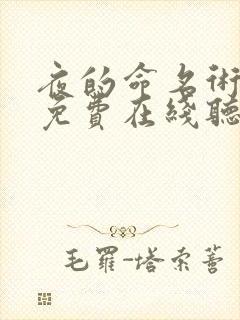 夜的命名術
免費在綫聽
毛羅-塔索蒈